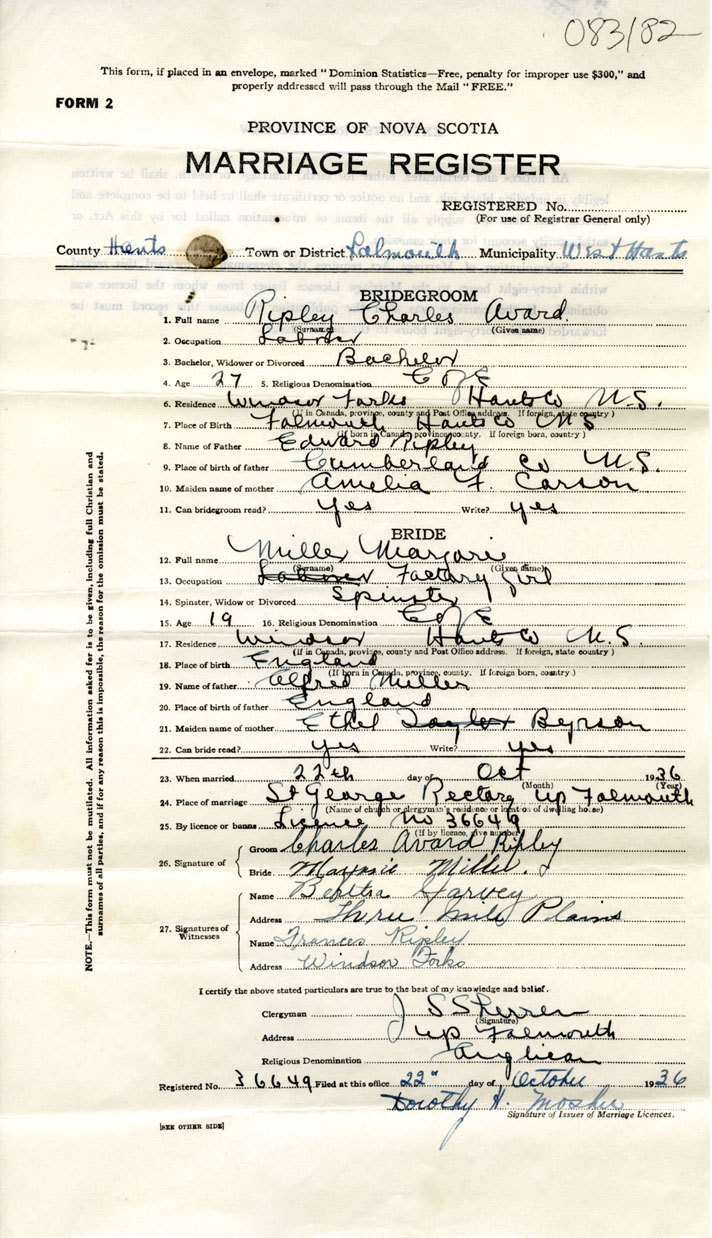 083182
This form, if placed in an envelope, marked "Dominion Statistics—Free, penalty for improper use $300," and
properly addressed will pass through the Mail "FREE."
FORM 2
PROVINCE OF NOVA SCOTIA
MARRIAGE REGISTER
REGISTERED No.
(For use of Registrar General only)
County Hants Town or District Falmouth Municipality West Hants
BRIDEGROOM
1. Full name Ripley Charles Avard
(Surname) (Given name)
2. Occupation Labrer
3. Bachelor, Widower or Divorced Bachelor
4. Age 27 5. Religious Denomination C of E
6. Residence Windsor Forks Hants Co N.S.
(If in Canada, province, county and Post Office address. If foreign, state country)
7. Place of Birth Falmouth Hants Co N S
(If born in Canada, province, county. If foreign born, country)
8. Name of Father Edward Ripley
9. Place of birth of father Cumberland Co N.S.
10. Maiden name of mother Amelia F. Carson
11. Can bridegroom read? yes Write? yes
BRIDE
12. Full name Miller Marjorie
(Surname) (Given name)
13. Occupation Labrer Factory Girl
14. Spinster, Widow or Divorced Spinster
15. Age 19 16. Religious Denomination C of E
17. Residence Windsor Hants Co N.S.
(If in Canada, province, county and Post Office address. If foreign, state country)
18. Place of birth England
(If born in Canada, province, county. If foreign born, country.)
19. Name of father Alfred Miller
20. Place of birth of father England
21. Maiden name of mother Ethel Taylor Beyrson
22. Can bride read? yes Write? yes
23. When married 22th day of Oct 1936
(Month) (Year)
24. Place of marriage St George Rectory Up Falmouth
(Name of church or clergyman's residence or location of dwelling house)
25. By licence or banns Licence No 36649
(If by licence, give number)
26. Signature of Groom Charles Avard Ripley
Bride Marjorie Miller.
27. Signatures of Witnesses
Name Bertha Harvey
Address Three Mile Plains
Name Frances Ripley
Address Windsor Forks
I certify the above stated particulars are true to the best of my knowledge and belief.
Clergyman J S Sherren
(Signature)
Address up Falmouth
Religious Denomination Anglican
Registered No. 36649 Filed at this office 22" day of October 1936
Dorothy H. Mosher
Signature of Issuer of Marriage Licences.
[SEE OTHER SIDE]
NOTE.—This form must not be mutilated. All information asked for is to be given, including full Christian and
surnames of all parties, and if for any reason this is impossible, the reason for the omission must be stated.